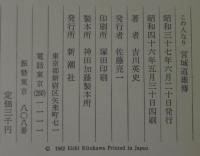 この人なり 宮城道雄傳
昭和三十七年六月二十日発行
昭和四十六年五月三十日四刷
著者 吉川英史
発行者 佐藤亮一
印刷所 塚田印刷
製本所 神田加藤製本所
発行所 新潮社
東京都新宿区矢来町七一
電話東京(260)一一一一
振替東京 八〇八番
定価三千円
© 1962 Eishi Kikkawa Printed in Japan